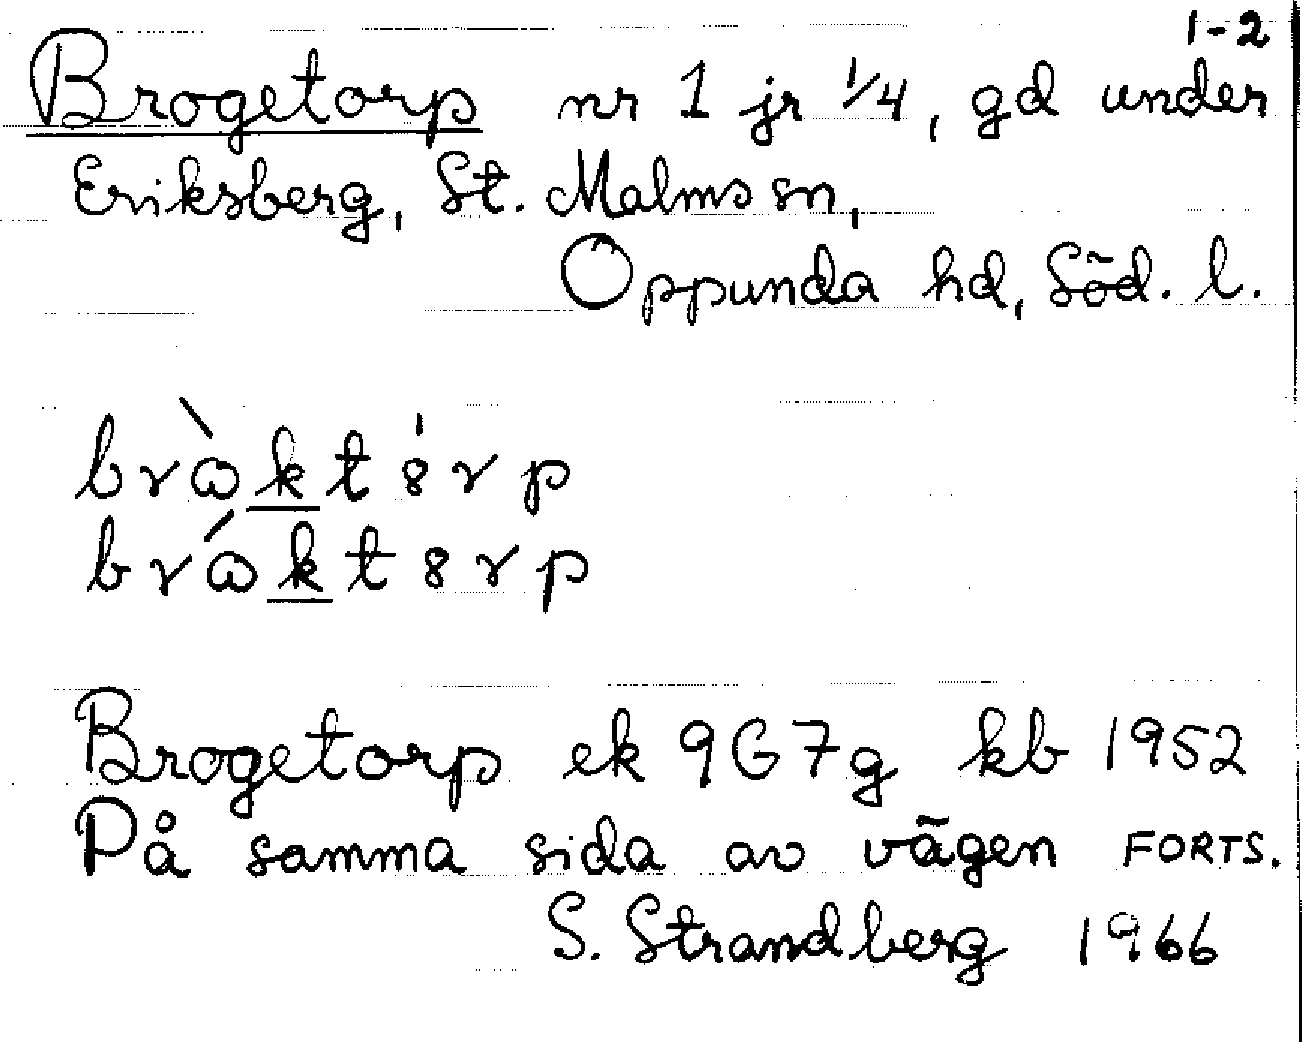 1-2
Brogetorp nr 1 jr 1/4, gd under
Eriksberg, St. Malms sn,
Oppunda hd, Söd. l.
brὼktȣ́rp
brώktȣrp
Brogetorp ek 9G7g kb 1952
På samma sida av vägen FORTS.
S. Strandberg 1966